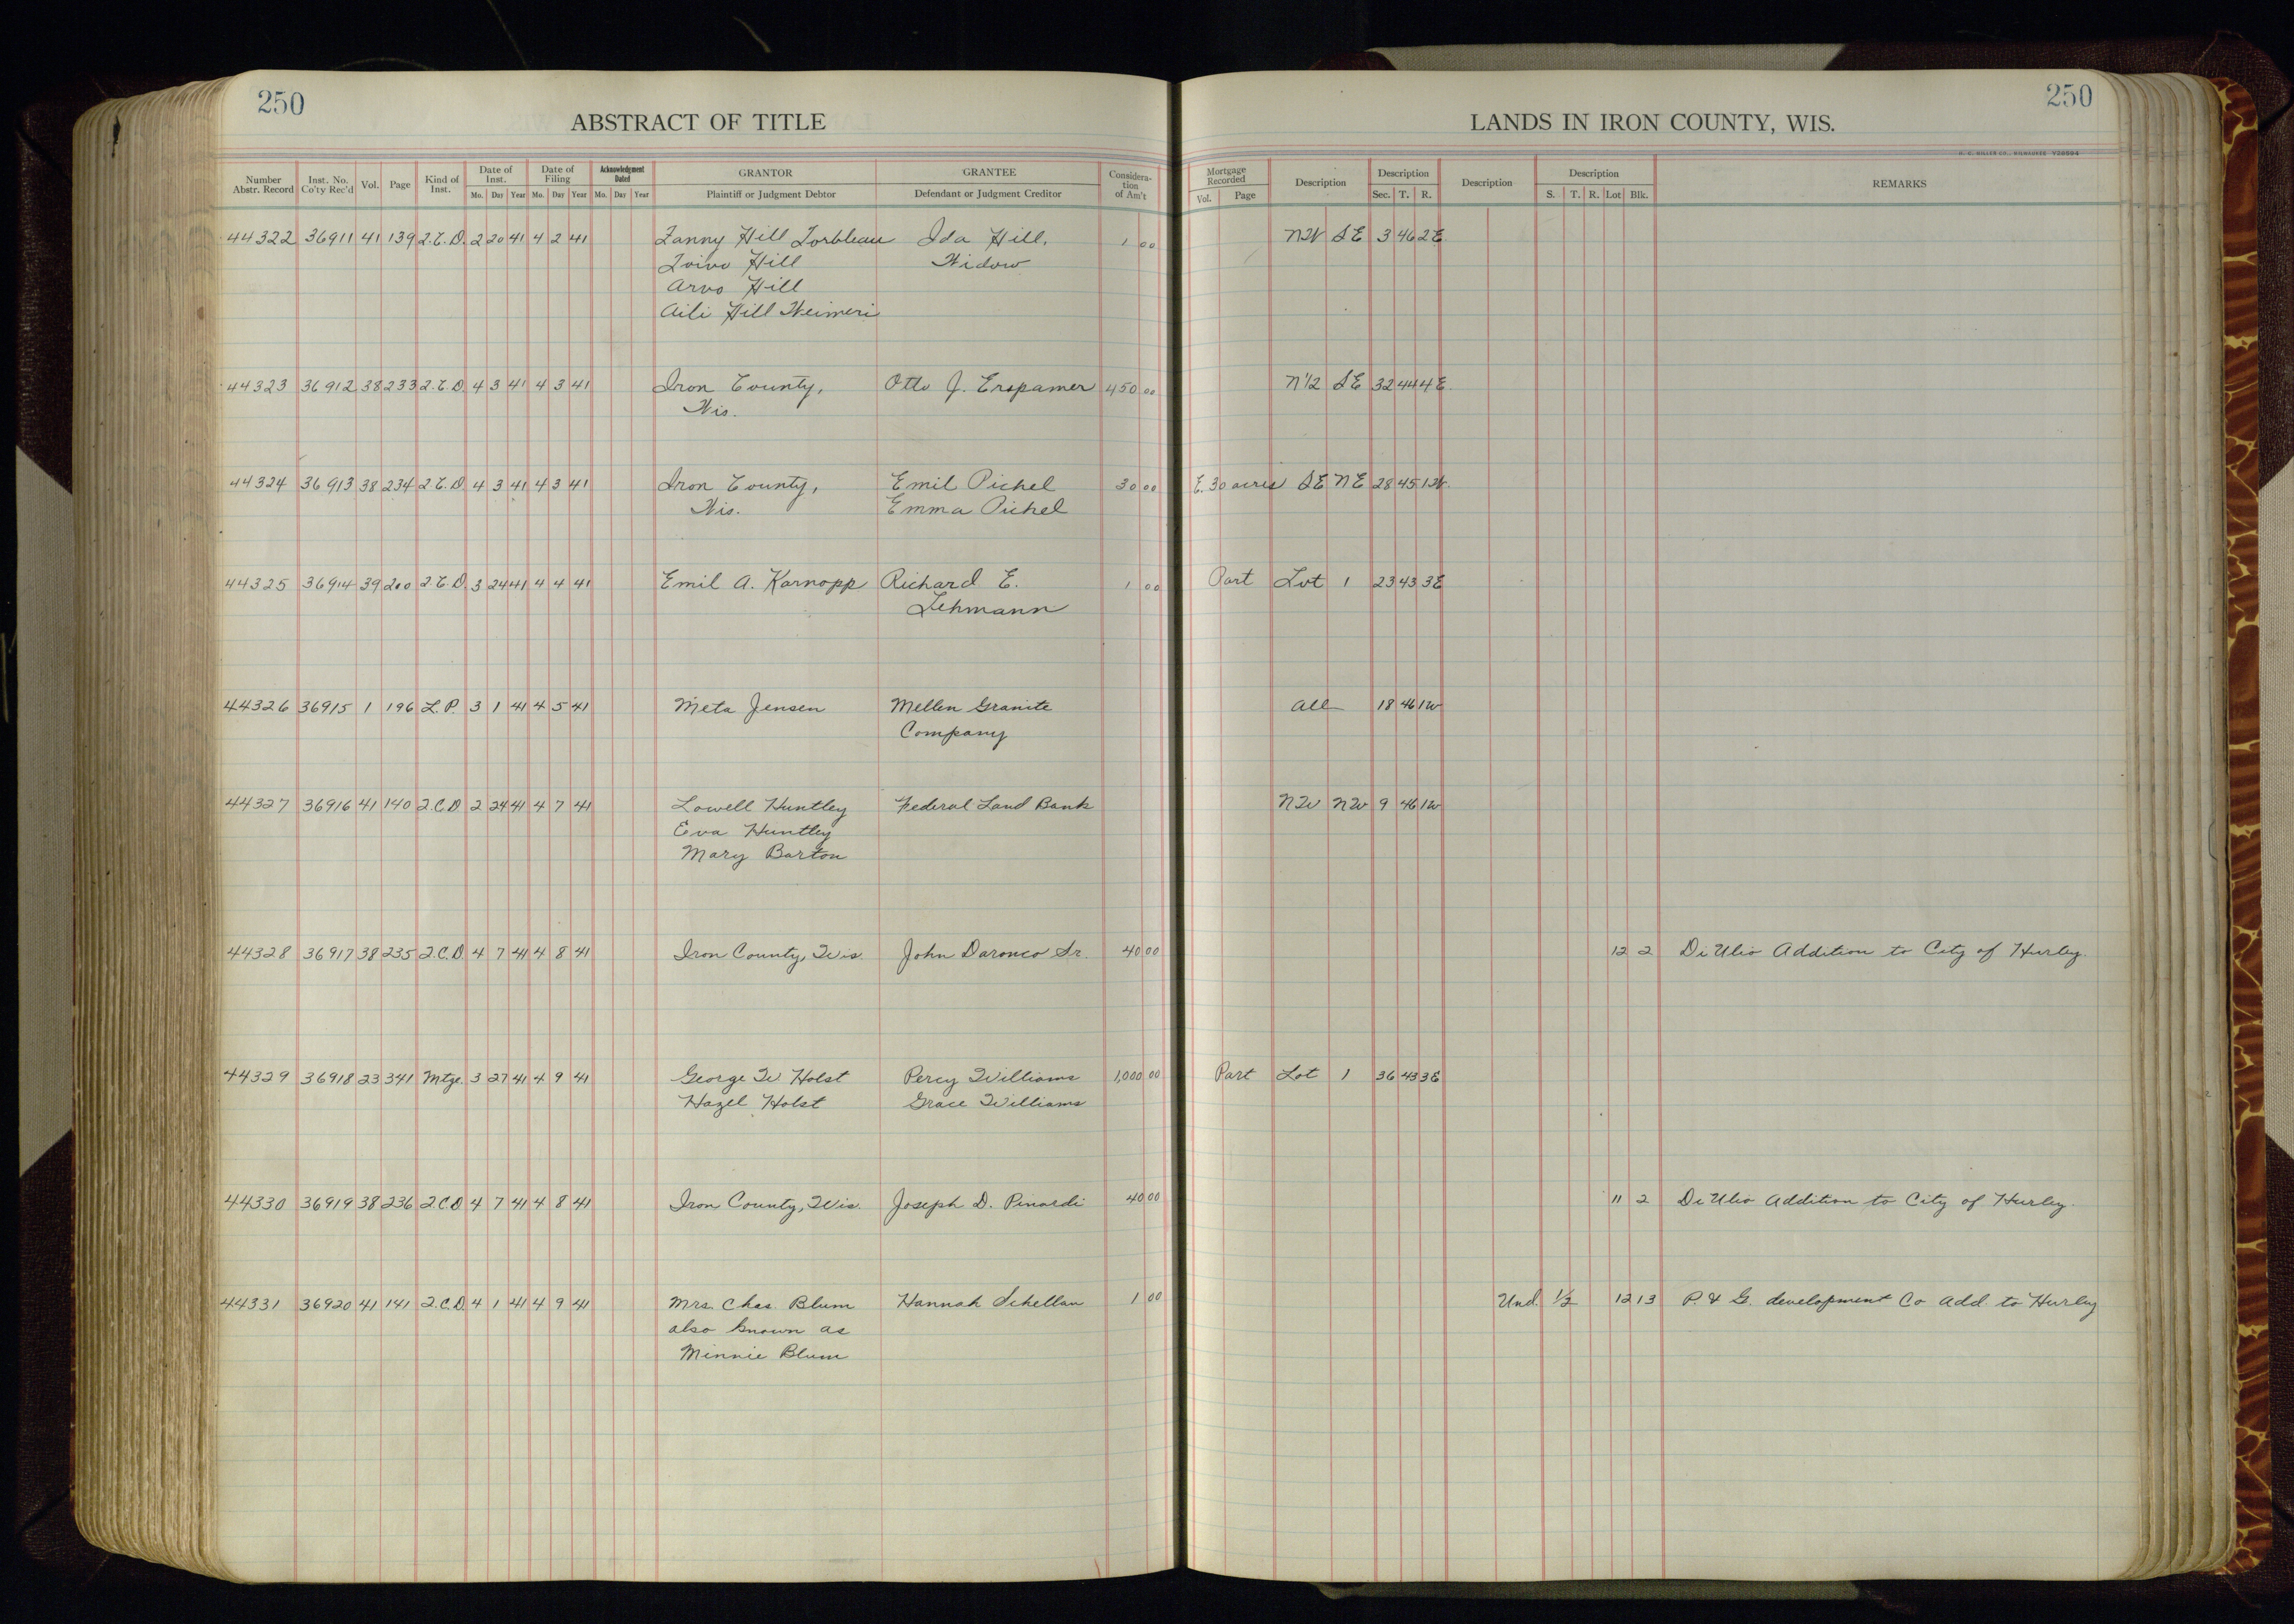 250
ABSTRACT OF TITLE
Number Abstr. Record | Inst. No. Co'ty Rec'd | Vol. | Page | Kind of Inst. | Date of Inst. Mo. Day Year | Date of Filing Mo. Day Year | Acknowledgment Dated Mo. Day Year | GRANTOR Plaintiff or Judgment Debtor | GRANTEE Defendant or Judgment Creditor | Consideration of Am't
250
LANDS IN IRON COUNTY, WIS.
H. C. MILLER CO., MILWAUKEE Y28994
Mortgage Recorded Vol. Page | Description | Description Sec. T. R. | Description | Description S. T. R. Lot Blk. | REMARKS
44322 36911 41 139 Q.C.D. 2 20 41 4 2 41 Ida Hill, 1 00 NW SE 3 46 2E
Toivo Hill Widow
Arvo Hill
Aili Hill Weimeri
44323 36912 38 233 Q.C.D. 4 3 41 4 3 41 Iron County, Otto J. Erspamer 450 00 N1/2 SE 32 44 4E.
Wis.
44324 36913 38 234 Q.C.D 4 3 41 4 3 41 Iron County, Emil Pichel 30 00 E. 30 acres SE NE 28 45 1W.
Wis. Emma Pichel
44325 36914 39 200 Q.C.D. 3 24 41 4 4 41 Emil A. Karnopp Richard E. 1 00 Part Lot 1 23 43 3E
Lehmann
44326 36915 1 196 L.P. 3 1 41 4 5 41 Meta Jensen Mellen Granite All 18 46 1W
Company
44327 36916 41 140 Q.C.D 2 24 41 4 7 41 Lowell Huntley Federal Land Bank NW NW 9 46 1W
Eva Huntley
Mary Barton
44328 36917 38 235 Q.C.D 4 7 41 4 8 41 Iron County, Wis. John Daronco Sr. 40 00 12 2 Di Ulio Addition to City of Hurley.
44329 36918 23 341 Mtge. 3 27 41 4 9 41 George W Holst Percy Williams 1,000 00 Part Lot 1 36 43 3E
Hazel Holst Grace Williams
44330 36919 38 236 Q.C.D 4 7 41 4 8 41 Iron County, Wis. Joseph D. Pinardi 40 00 11 2 Di Ulio Addition to City of Hurley.
44331 36920 41 141 Q.C.D. 4 1 41 4 9 41 Mrs. Chas. Blum Hannah Schellan 1 00 Und. 1/2 12 13 P. & G. development Co Add. to Hurley
also known as
Minnie Blum